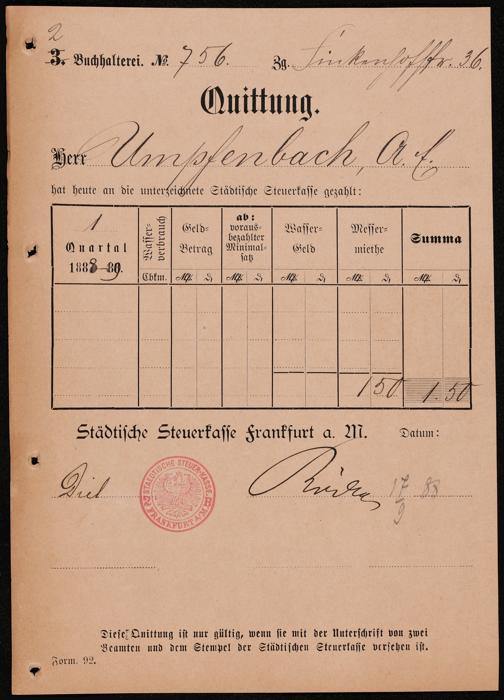 2
3. Buchhalterei. No. 756. Zg. Finkenhofstr. 36.
Quittung.
Herr Umpfenbach, A. E.
hat heute an die unterzeichnete Städtische Steuerkasse gezahlt:
1
Quartal
1888-89.
Wasser-
verbrauch
Cbkm.
Geld-
Betrag
ab:
voraus-
bezahlter
Minimal-
satz
Wasser-
Geld
Messer-
miethe
Summa
150 1.50
Städtische Steuerkasse Frankfurt a. M. Datum:
Diel
17/9 88
STAEDTISCHE STEUER-KASSE
FRANKFURT A/M
Diese Quittung ist nur gültig, wenn sie mit der Unterschrift von zwei
Beamten und dem Stempel der Städtischen Steuerkasse versehen ist.
Form. 92.